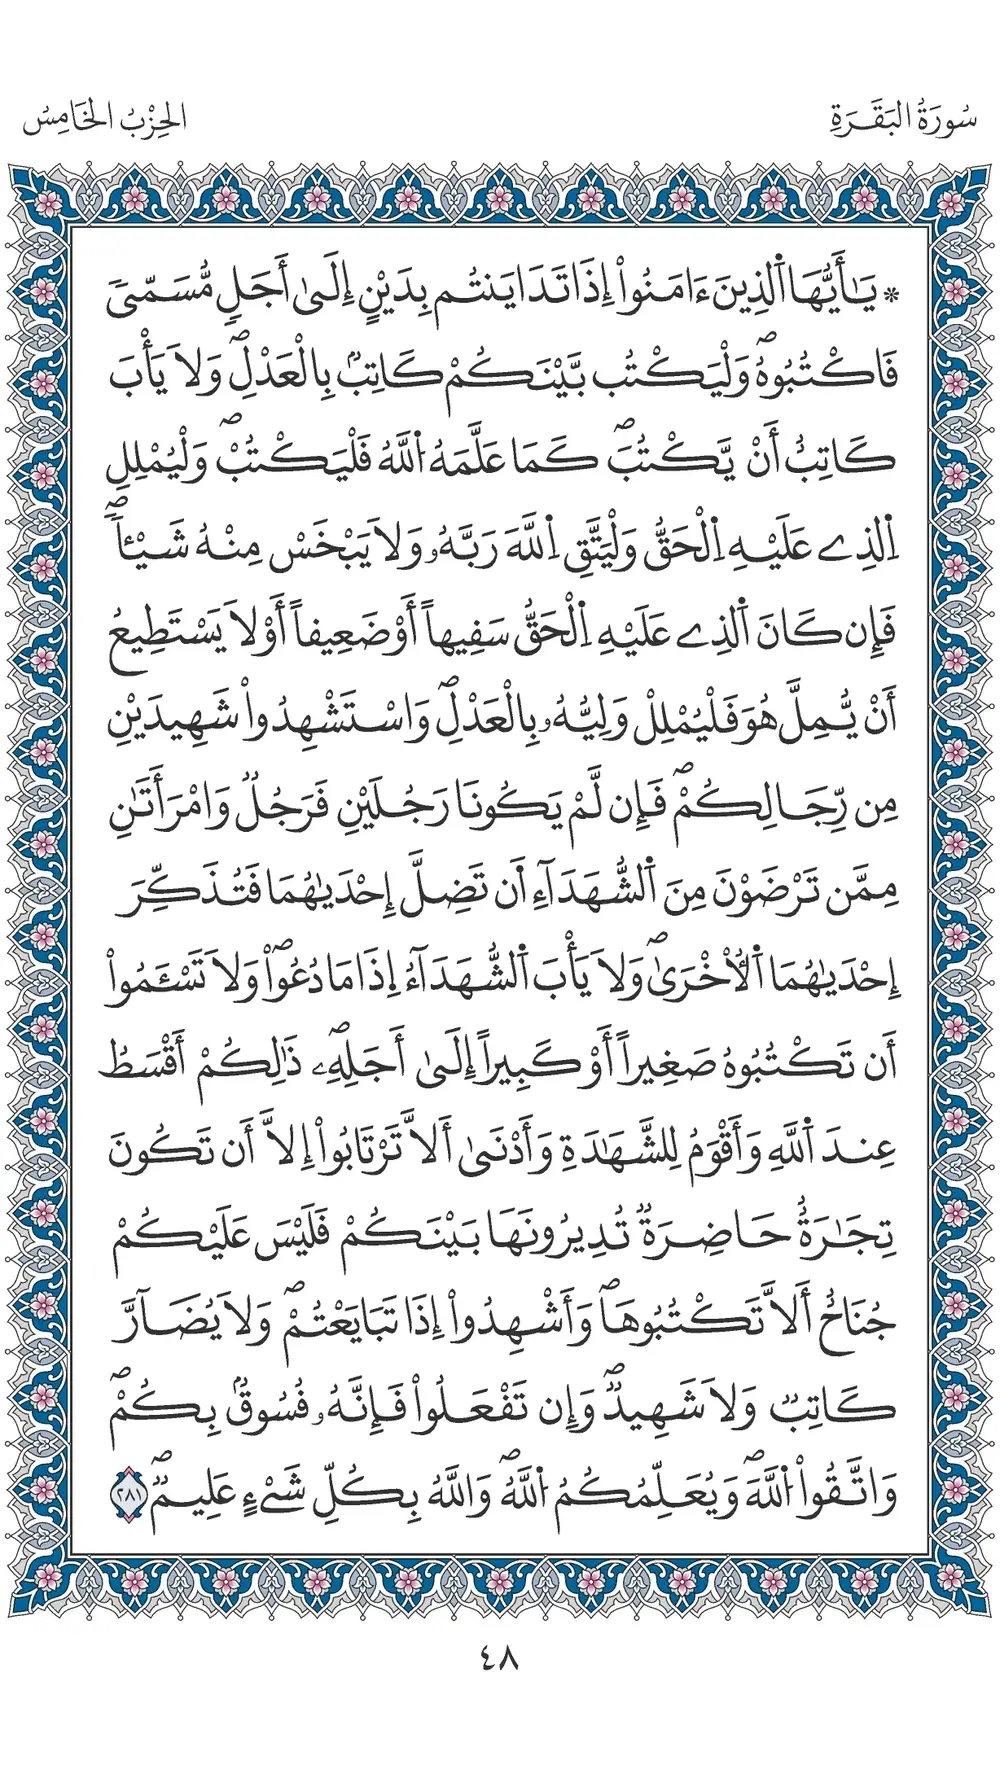 سُورَةُ الْبَقَرَةِ
الْحِزْبُ الْخَامِسُ
* يَٰٓأَيُّهَا اَ۬لذِينَ ءَامَنُوٓاْ إِذَا تَدَايَنتُم بِدَيْنٍ إِلَىٰٓ أَجَلٖ مُّسَمّيٗ
فَاكْتُبُوهُۖ وَلْيَكْتُب بَّيْنَكُمْ كَاتِبُۢ بِالْعَدْلِۖ وَلَا يَأْبَ
كَاتِبٌ أَنْ يَّكْتُبَۖ كَمَا عَلَّمَهُ اُ۬للَّهُ فَلْيَكْتُبْۖ وَلْيُمْلِلِ
اِ۬لذِے عَلَيْهِ اِ۬لْحَقُّ وَلْيَتَّقِ اِ۬للَّهَ رَبَّهُۥ وَلَا يَبْخَسْ مِنْهُ شَيْـٔاٗۖ
فَإِن كَانَ اَ۬لذِے عَلَيْهِ اِ۬لْحَقُّ سَفِيهاً أَوْ ضَعِيفاً أَوْ لَا يَسْتَطِيعُ
أَنْ يُّمِلَّ هُوَ فَلْيُمْلِلْ وَلِيُّهُۥ بِالْعَدْلِۖ وَاسْتَشْهِدُواْ شَهِيدَيْنِ
مِن رِّجَالِكُمْۖ فَإِن لَّمْ يَكُونَا رَجُلَيْنِ فَرَجُلٞ وَامْرَأَتَٰنِ
مِمَّن تَرْضَوْنَ مِنَ اَ۬لشُّهَدَآءِ اَ۬ن تَضِلَّ إِحْدَيٰهُمَا فَتُذَكِّرَ
إِحْدَيٰهُمَا اَ۬لُاخْرَيٰۖ وَلَا يَأْبَ اَ۬لشُّهَدَآءُ اِ۪ذَا مَا دُعُواْۖ وَلَا تَسْـَٔمُوٓاْ
أَن تَكْتُبُوهُ صَغِيراً أَوْ كَبِيراً إِلَىٰٓ أَجَلِهِۦۖ ذَٰلِكُمْ أَقْسَطُ
عِندَ اَ۬للَّهِ وَأَقْوَمُ لِلشَّهَٰدَةِ وَأَدْنَىٰٓ أَلَّا تَرْتَابُوٓاْ إِلَّآ أَن تَكُونَ
تِجَٰرَةٌ حَاضِرَةٞ تُدِيرُونَهَا بَيْنَكُمْ فَلَيْسَ عَلَيْكُمْ
جُنَاحٌ أَلَّا تَكْتُبُوهَاۖ وَأَشْهِدُوٓاْ إِذَا تَبَايَعْتُمْۖ وَلَا يُضَآرَّ
كَاتِبٞ وَلَا شَهِيدٞۖ وَإِن تَفْعَلُواْ فَإِنَّهُۥ فُسُوقُۢ بِكُمْۖ
وَاتَّقُواْ اُ۬للَّهَۖ وَيُعَلِّمُكُمُ اُ۬للَّهُۖ وَاللَّهُ بِكُلِّ شَےْءٍ عَلِيمٞۖ ٢٨١
٤٨